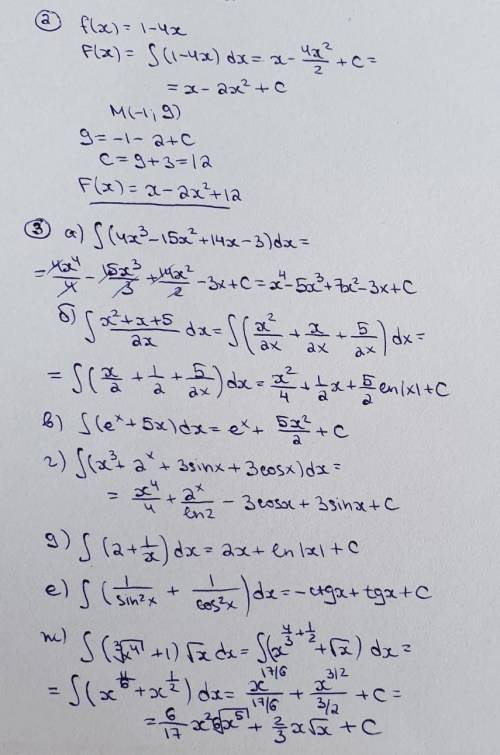 ② f(x) = 1-4x
F(x) = ∫(1-4x) dx = x - 4x²/2 + C =
= x - 2x² + C
M(-1; 9)
9 = -1 - 2 + C
C = 9 + 3 = 12
F(x) = x - 2x² + 12
③ а) ∫(4x³ - 15x² + 14x - 3)dx =
= 4x⁴/4 - 15x³/3 + 14x²/2 - 3x + C = x⁴ - 5x³ + 7x² - 3x + C
б) ∫ (x² + x + 5)/2x dx = ∫(x²/2x + x/2x + 5/2x) dx =
= ∫(x/2 + 1/2 + 5/2x) dx = x²/4 + 1/2 x + 5/2 ln|x| + C
в) ∫(eˣ + 5x)dx = eˣ + 5x²/2 + C
г) ∫(x³ + 2ˣ + 3sinx + 3cosx)dx =
= x⁴/4 + 2ˣ/ln2 - 3cosx + 3sinx + C
д) ∫(2 + 1/x) dx = 2x + ln|x| + C
е) ∫(1/sin²x + 1/cos²x) dx = -ctgx + tgx + C
ж) ∫(∛x⁴ + 1) √x dx = ∫(x^(4/3 + 1/2) + √x) dx =
= ∫(x^(11/6) + x^(1/2)) dx = x^(17/6)/(17/6) + x^(3/2)/(3/2) + C =
= 6/17 x² ⁶√x⁵ + 2/3 x√x + C